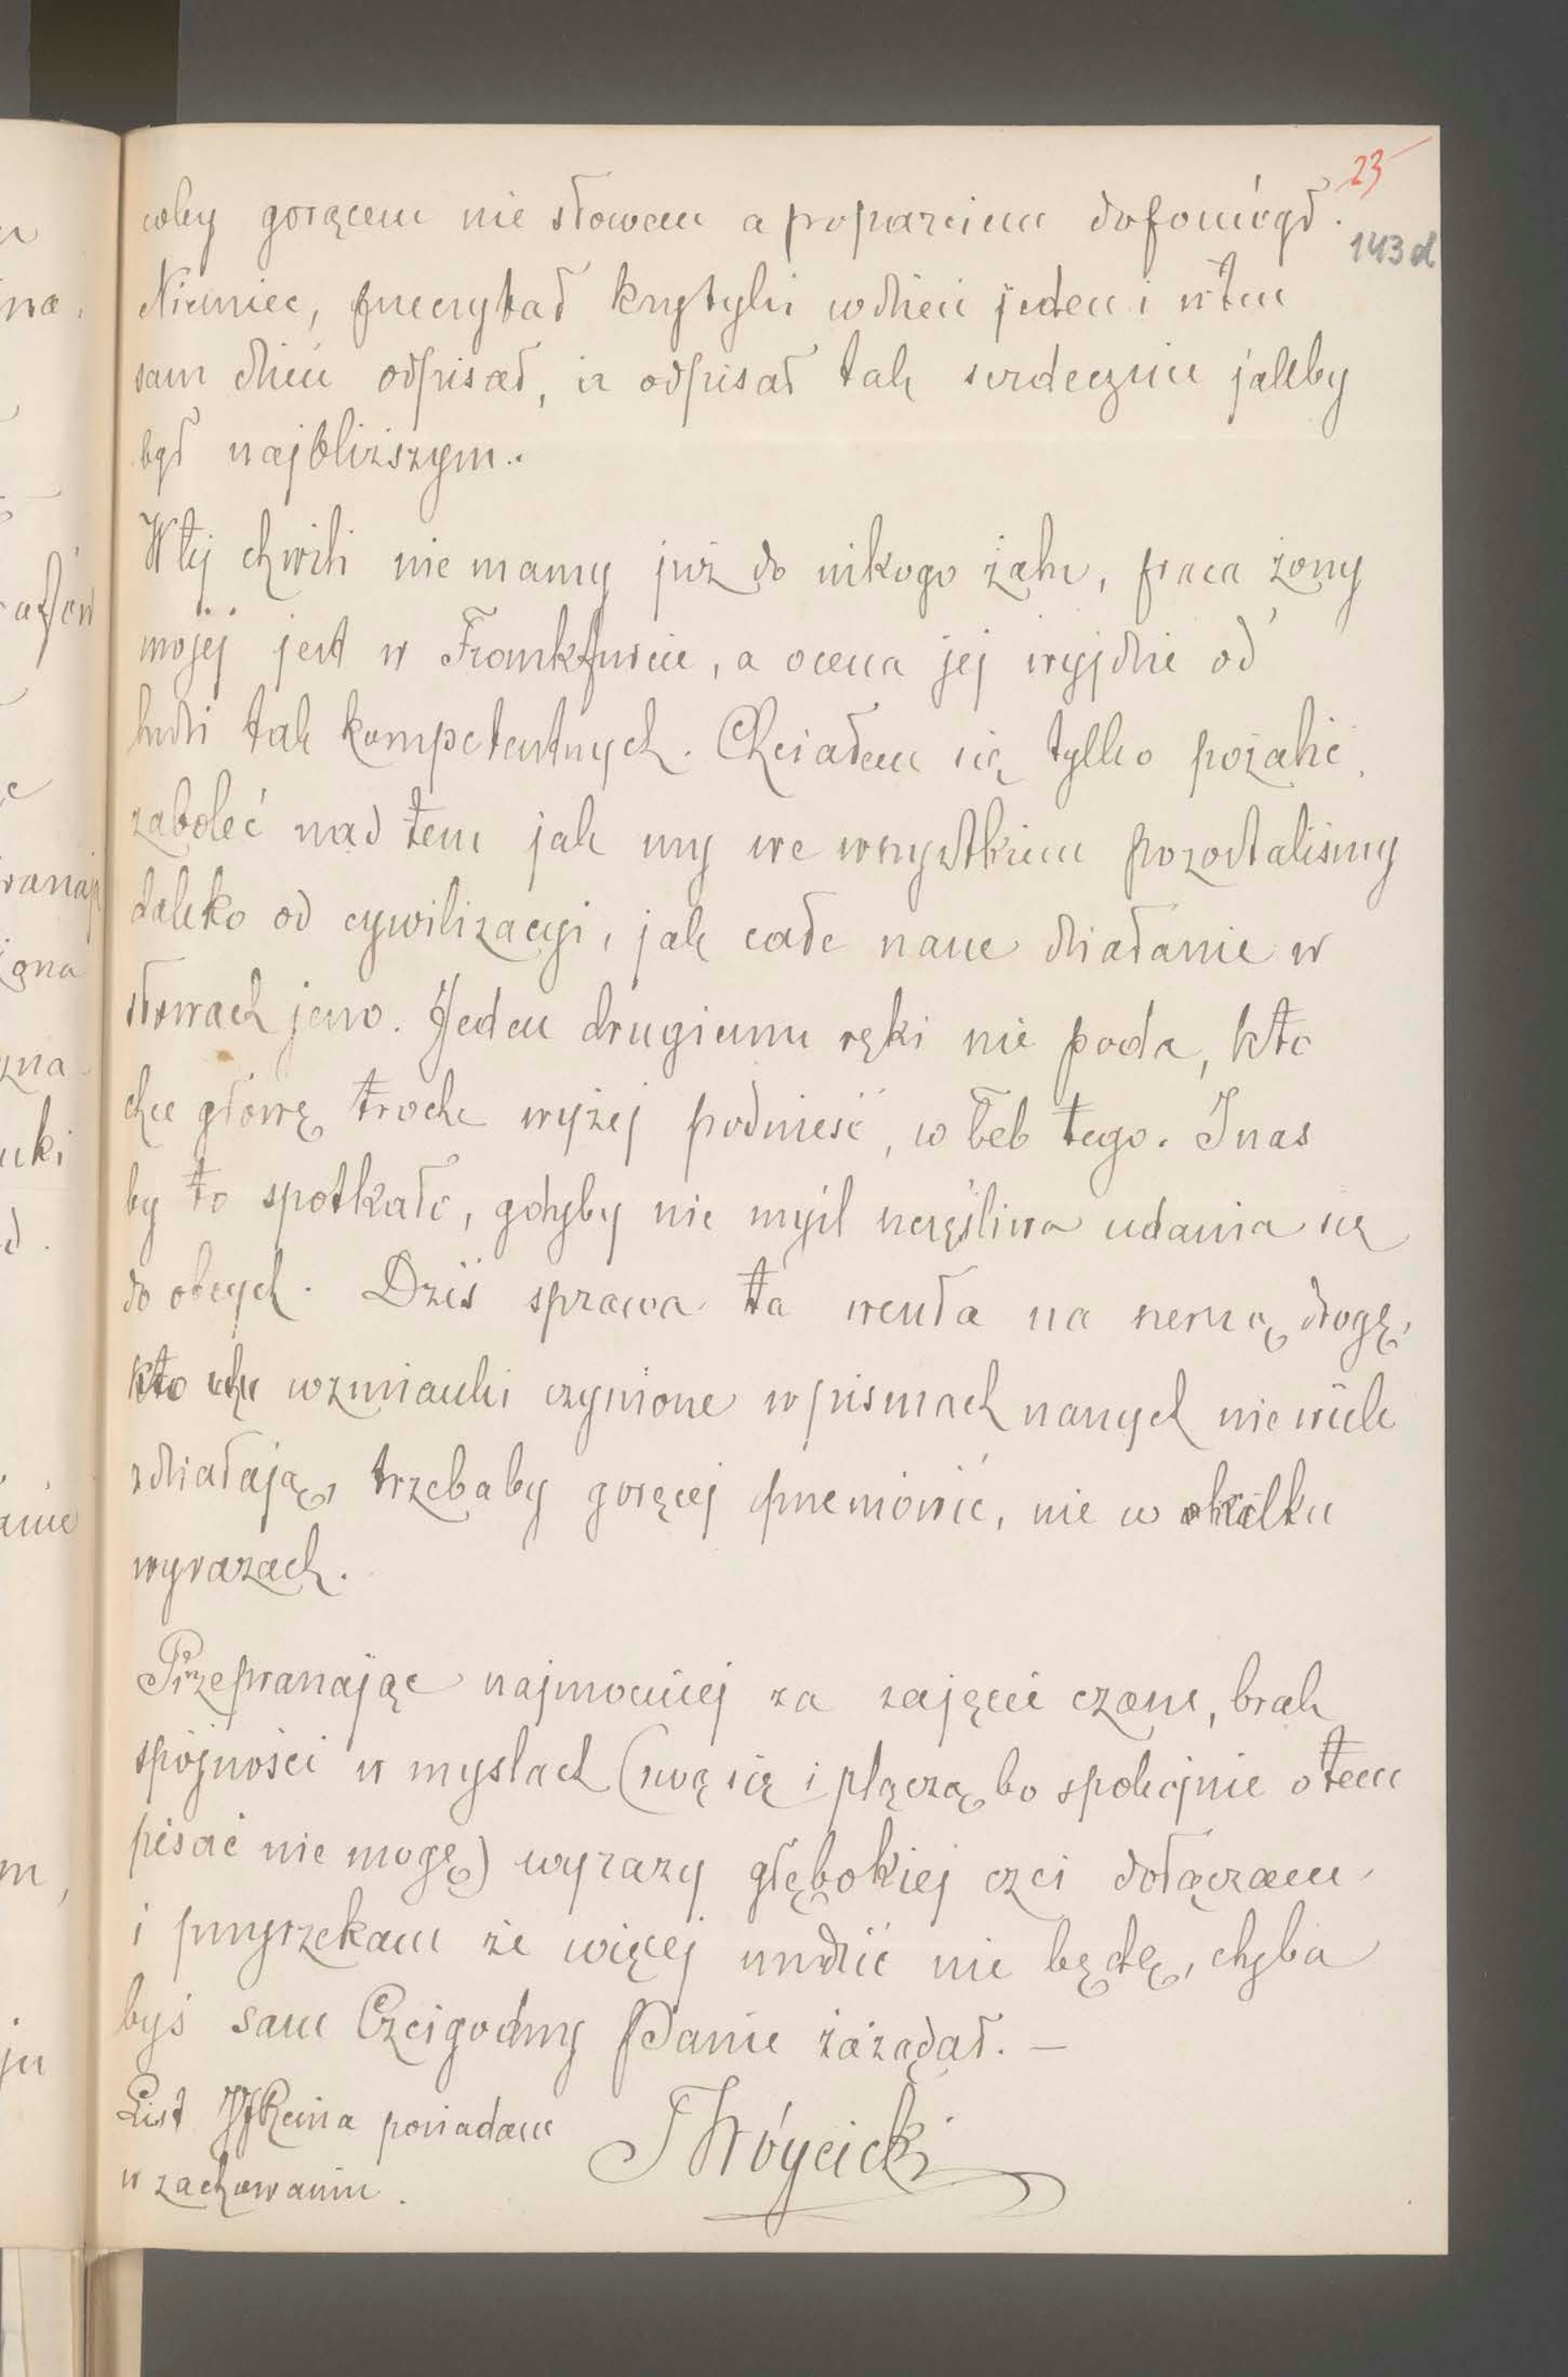 23
coby gorącem nie słowem a poparciem dopomógł.
143d
Niemiec, przeczytał krytyki w dzień jeden i w ten
sam dzień odpisał, i odpisał tak serdecznie jakby
był najbliższym.
W tej chwili nie mamy już do nikogo żalu, praca żony
mojej jest w Frankfurcie, a ocena jej wyjdzie od
ludzi tak kompetentnych. Chciałem się tylko pożalić,
zaboleć nad tem jak my we wszystkiem pozostaliśmy
daleko od cywilizacyi, jak całe nasze działanie w
słowach jeno. Jeden drugiemu ręki nie poda, kto
chce głowę troche wyżej podnieść, w łeb tego. I nas
by to spotkało, gdyby nie myśl szczęśliwa udania się
do obcych. Dziś sprawa ta weszła na szerszą drogę,
kto wzmianki czynione w pismach naszych nie wiele
zdziałają, trzebaby goręcej przemówić, nie w kilku
wyrazach.
Przepraszając najmocniej za zajęcie czasu, brak
spójności w myslach (rwą się i plączą bo spokojnie o tem
pisać nie mogę) wyrazy głębokiej czci dołączam
i przyrzekam że więcej nudzić nie będę, chyba
byś sam Czcigodny Panie zażądał. —
List Reina posiadam
w zachowaniu.
J Wóycicki